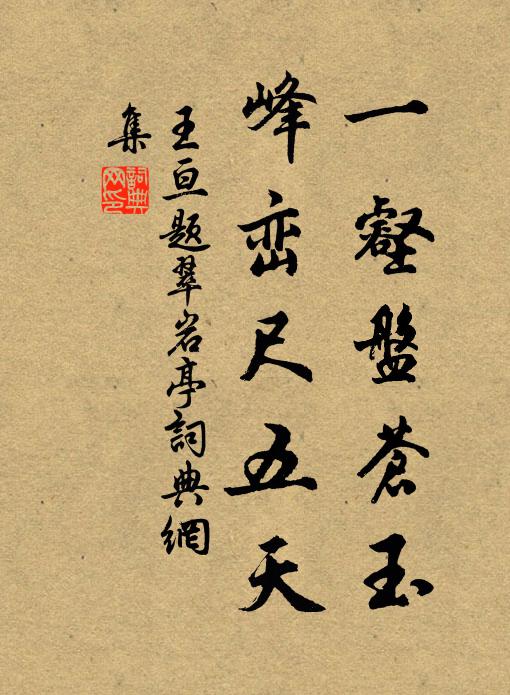 一壑盤蒼玉
峰峦尺五天
王亘题翠岩亭詞典網
集
詞典網印